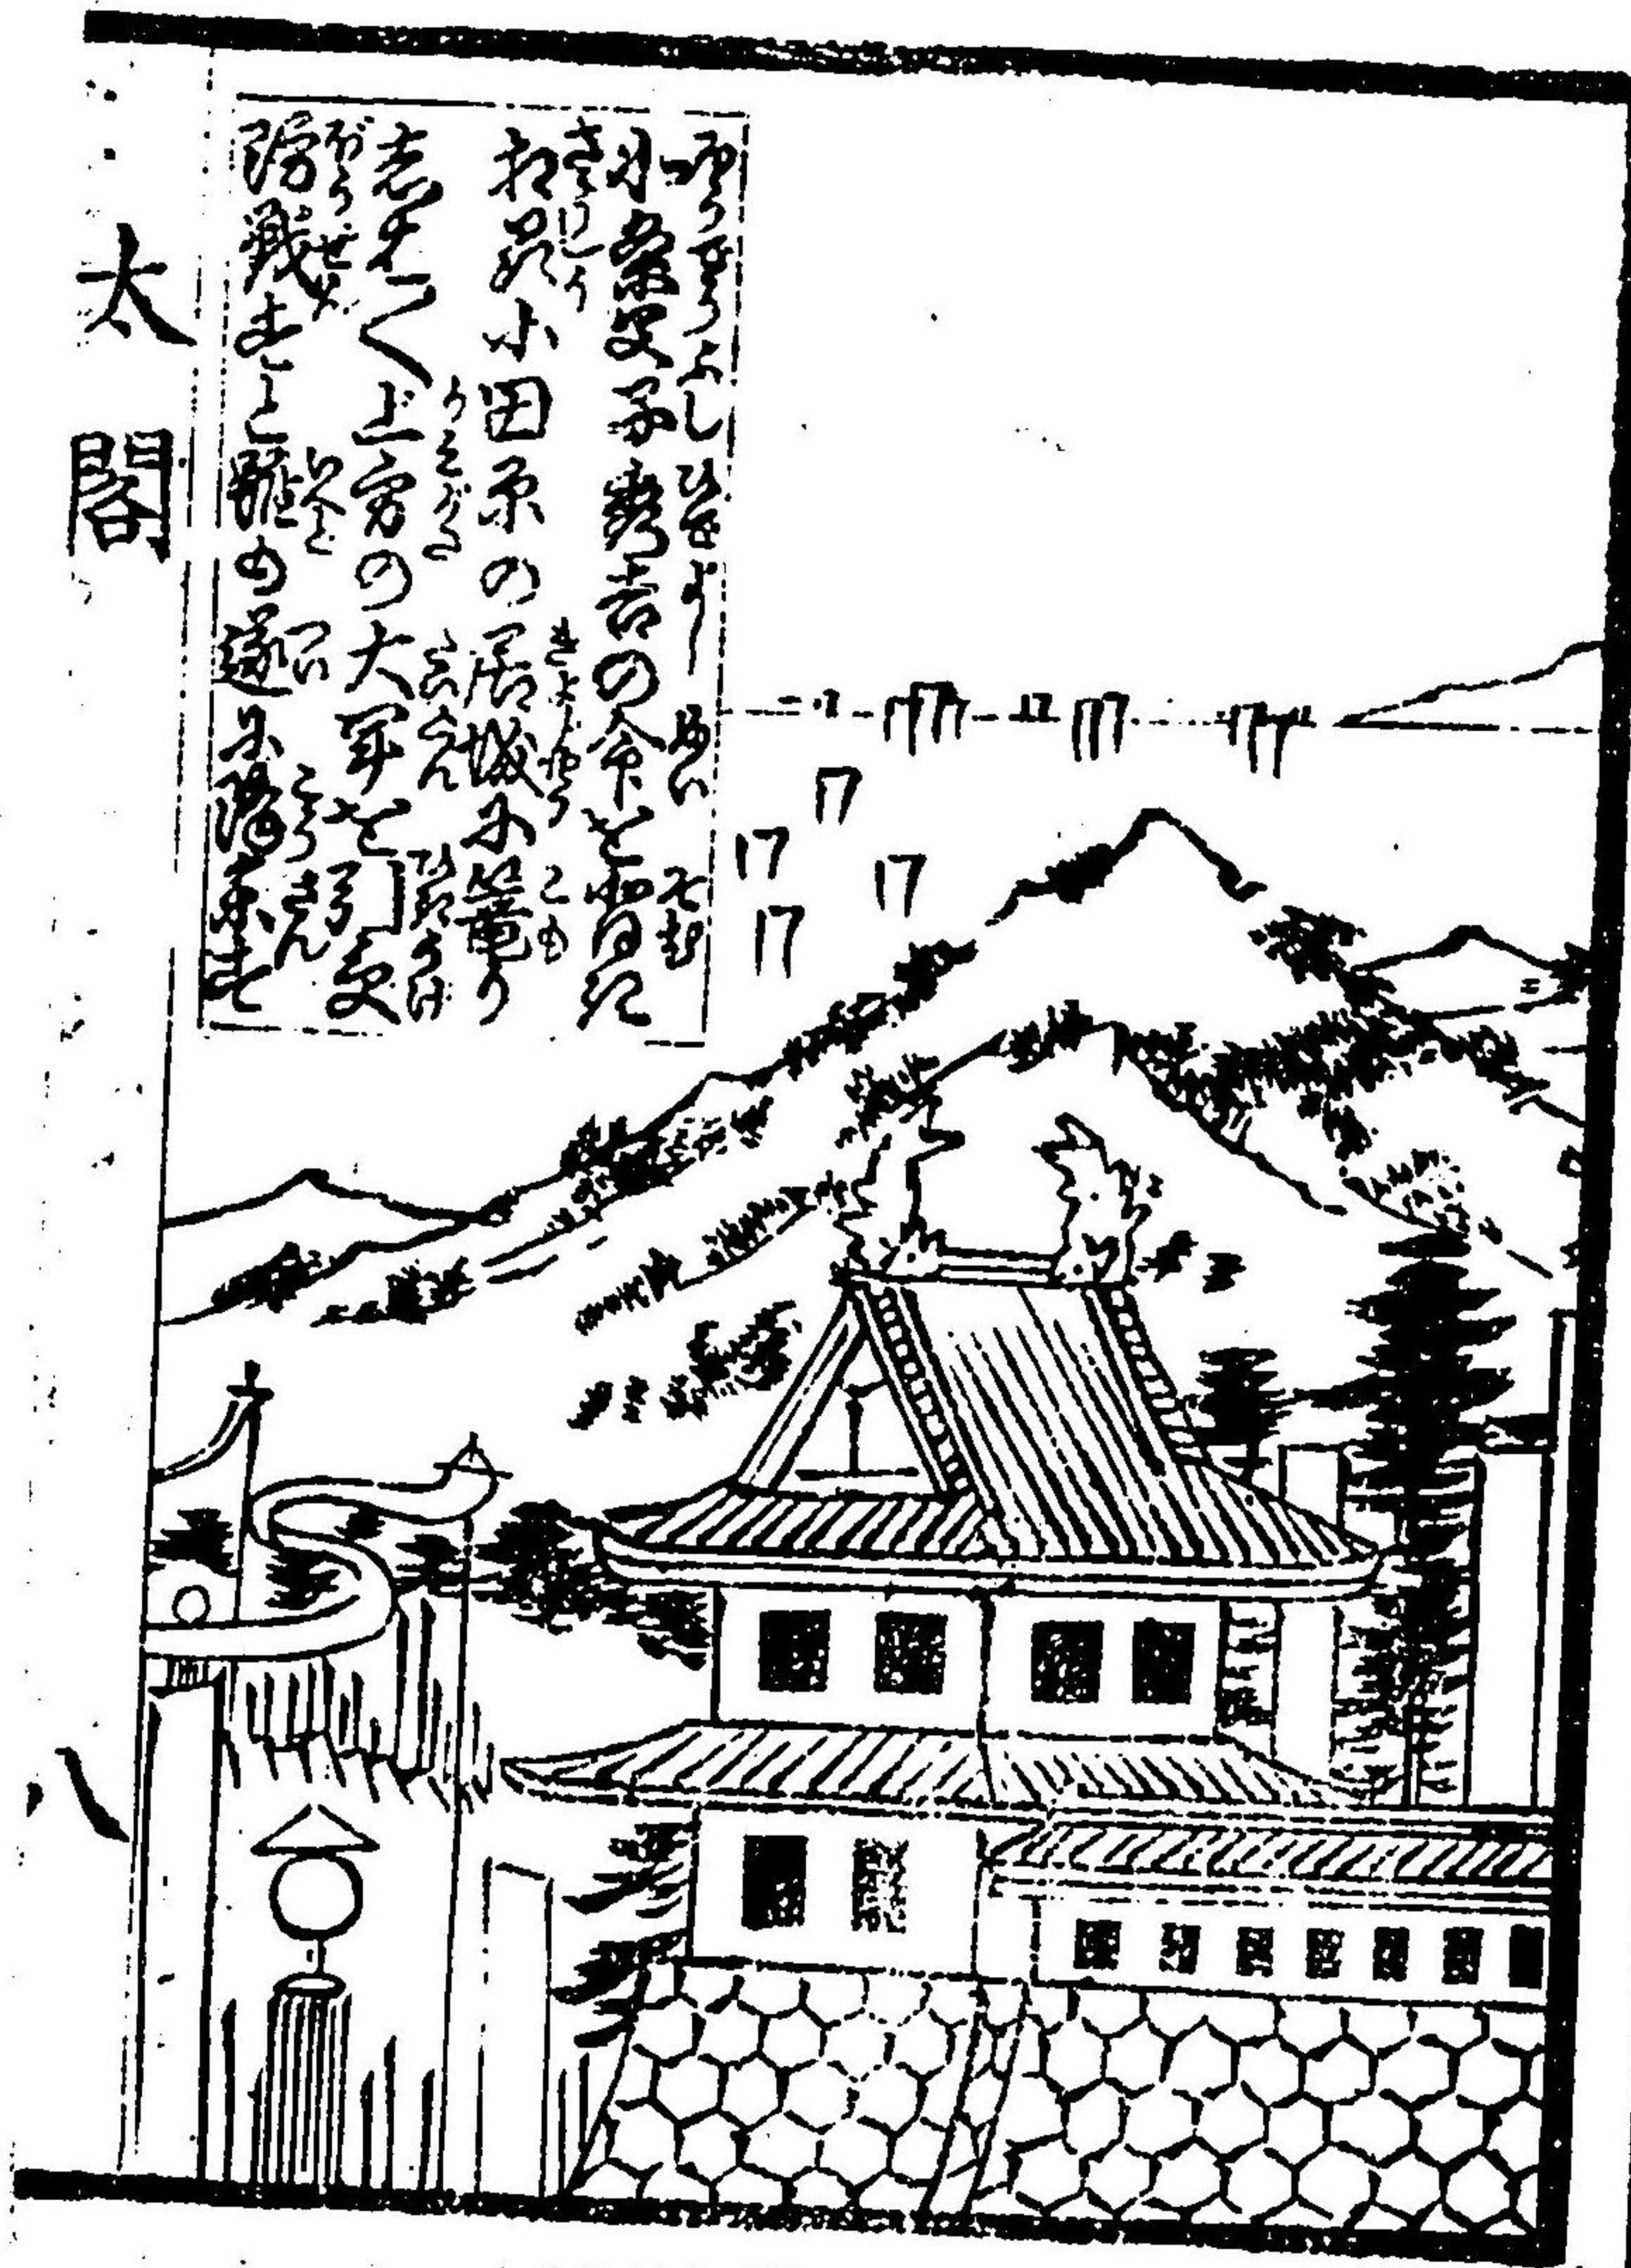 北条父子秀吉の命を背き
相州小田原の居城に篭り
志ば〱上方の大軍を引受
防戦すと雖も遂に降参す
太閤
八